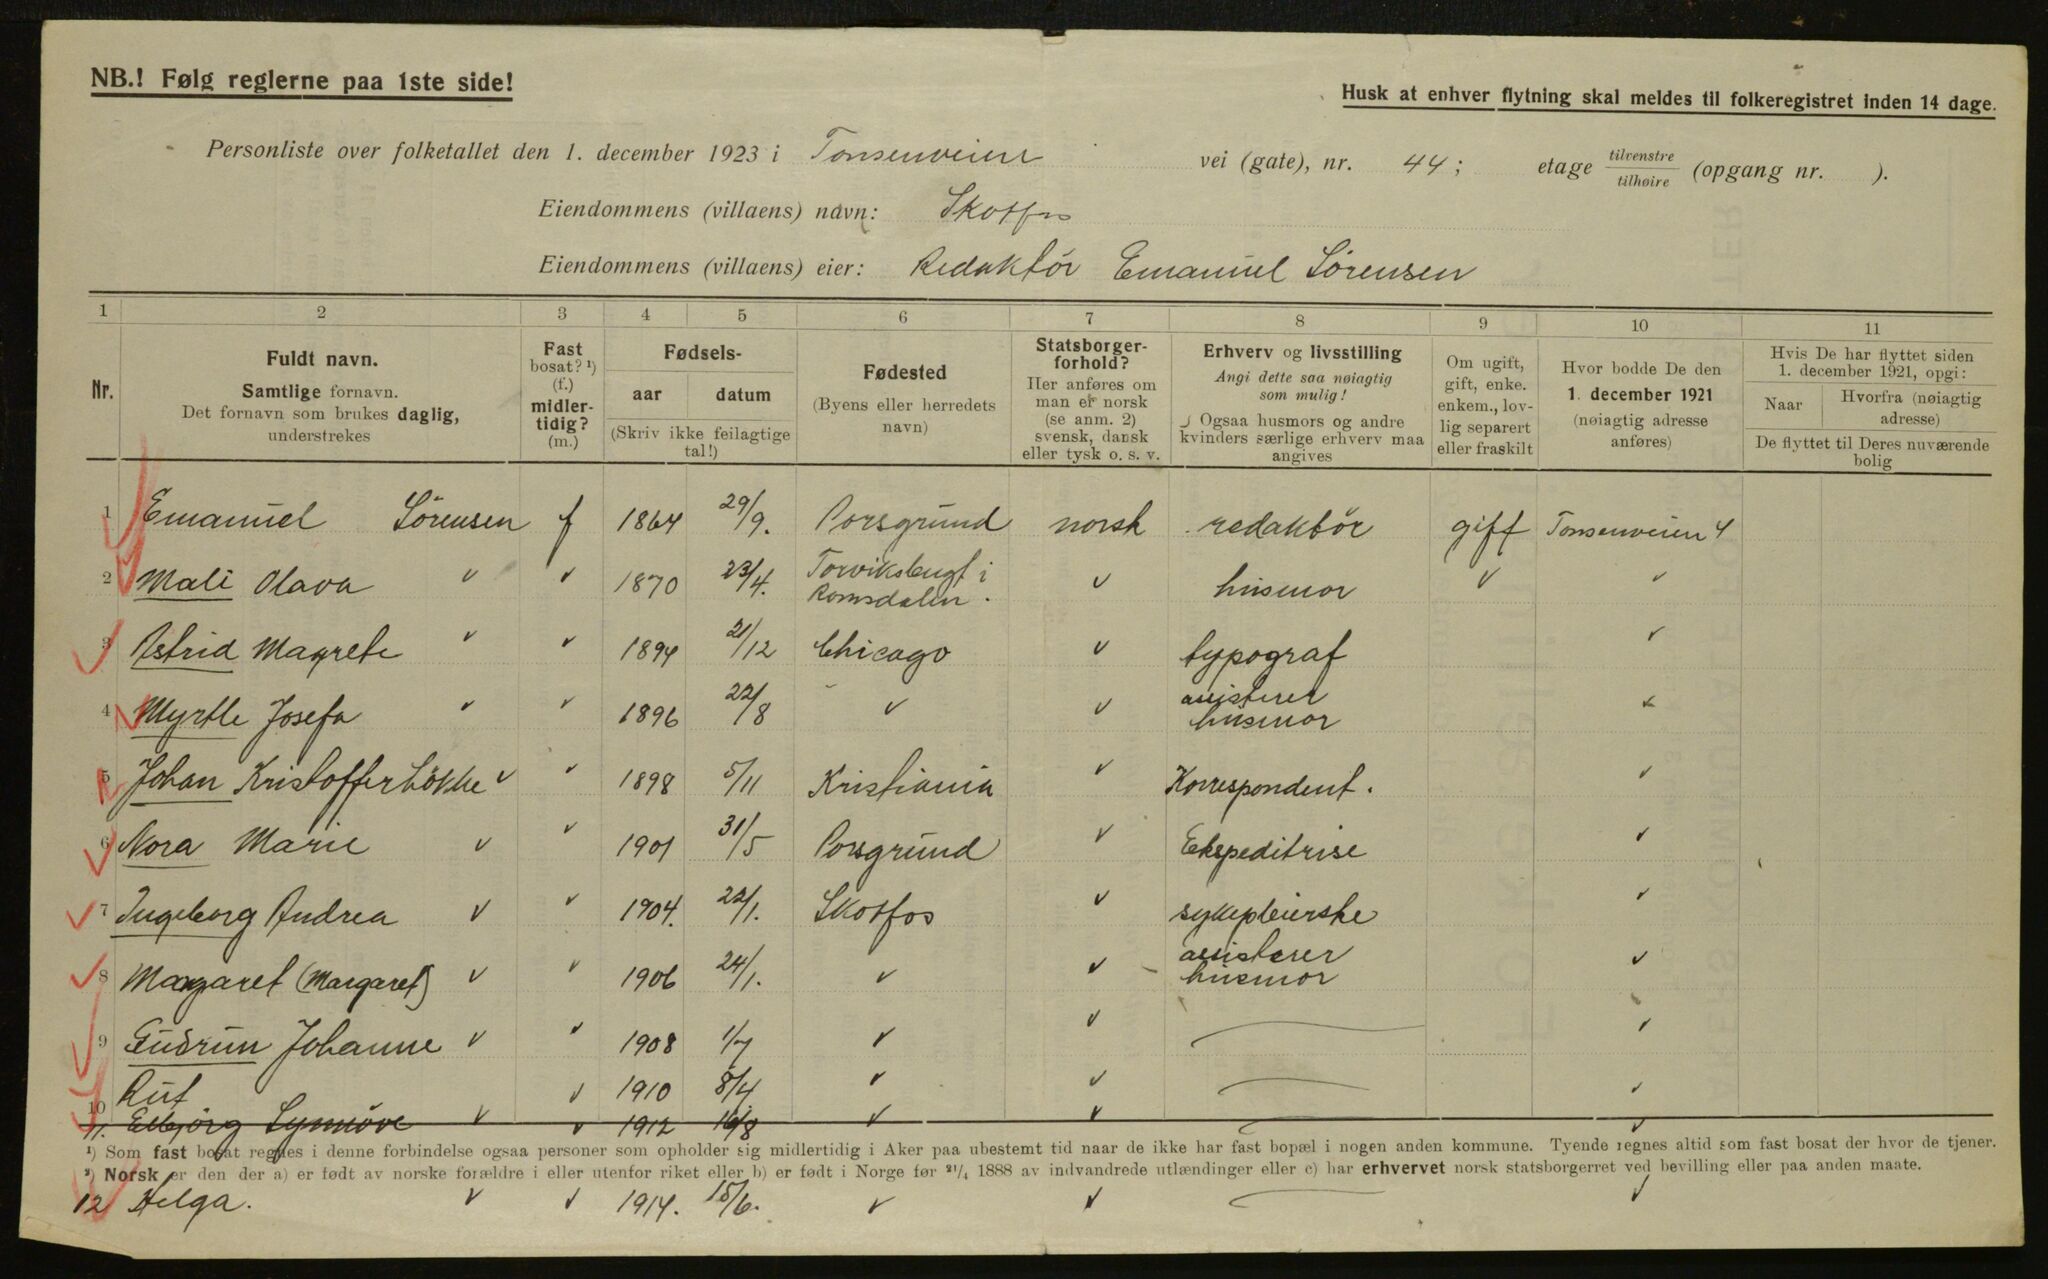 NB.! Følg reglerne paa 1ste side!
Husk at enhver flytning skal meldes til folkeregistret inden 14 dage.
Personliste over folketallet den 1. december 1923 i Tonsenveien vei (gate), nr. 44; etage tilvenstre / tilhøire (opgang nr. ).
Eiendommens (villaens) navn: Skotfos
Eiendommens (villaens) eier: Redaktør Emanuel Sørensen
1 2 3 4 5 6 7 8 9 10 11
Nr.
Fuldt navn.
Samtlige fornavn.
Det fornavn som brukes daglig,
understrekes
Fast
bosat? ¹)
(f.)
midler-
tidig?
(m.)
Fødsels-
aar datum
(Skriv ikke feilagtige
tal!)
Fødested
(Byens eller herredets
navn)
Statsborger-
forhold?
Her anføres om
man er norsk
(se anm. 2)
svensk, dansk
eller tysk o. s. v.
Erhverv og livsstilling
Angi dette saa nøiagtig
som mulig!
Ogsaa husmors og andre
kvinders særlige erhverv maa
angives
Om ugift,
gift, enke.
enkem., lov-
lig separert
eller fraskilt
Hvor bodde De den
1. december 1921
(nøiagtig adresse
anføres)
Hvis De har flyttet siden
1. december 1921, opgi:
Naar Hvorfra (nøiagtig
adresse)
De flyttet til Deres nuværende
bolig
1 Emanuel Sørensen f 1864 29/9. Porsgrund norsk redaktør gift Tonsenveien 4
2 Mali Olava " ✓ 1870 23/4. Torviksbugt i Romsdalen. ✓ husmor ✓ "
3 Astrid Magrete ✓ ✓ 1894 21/12 Chicago ✓ typograf ✓
4 Myrtle Josefa ✓ ✓ 1896 22/8 ✓ ✓ assisterer husmor ✓
5 Johan Kristoffer Løkke ✓ ✓ 1898 5/11 Kristiania ✓ Korrespondent. ✓
6 Nora Marie ✓ ✓ 1901 31/5 Porsgrund ✓ Ekspeditrise ✓
7 Ingeborg Andrea ✓ ✓ 1904. 22/1. Skotfos ✓ sykepleierske ✓
8 Margaret (Margaret) ✓ ✓ 1906 24/1. ✓ ✓ assisterer husmor ✓
9 Gudrun Johanne ✓ ✓ 1908 1/7 ✓ ✓ ✓
10 Rut ✓ 1910 8/4 ✓ ✓ ✓
11. Elbjørg Synnøve ✓ ✓ 1912 16/8 ✓ ✓ ✓
¹) Som fast bosat regnes i denne forbindelse ogsaa personer som opholder sig midlertidig i Aker paa ubestemt tid naar de ikke har fast bopæl i nogen anden kommune. Tyende regnes altid som fast bosat der hvor de tjener.
²) Norsk er den der a) er født av norske forældre i eller utenfor riket eller b) er født i Norge før 21/4 1888 av indvandrede utlændinger eller c) har erhvervet norsk statsborgerret ved bevilling eller paa anden maate.
12 Helga. ✓ ✓ 1914. 15/6. ✓ ✓ ✓